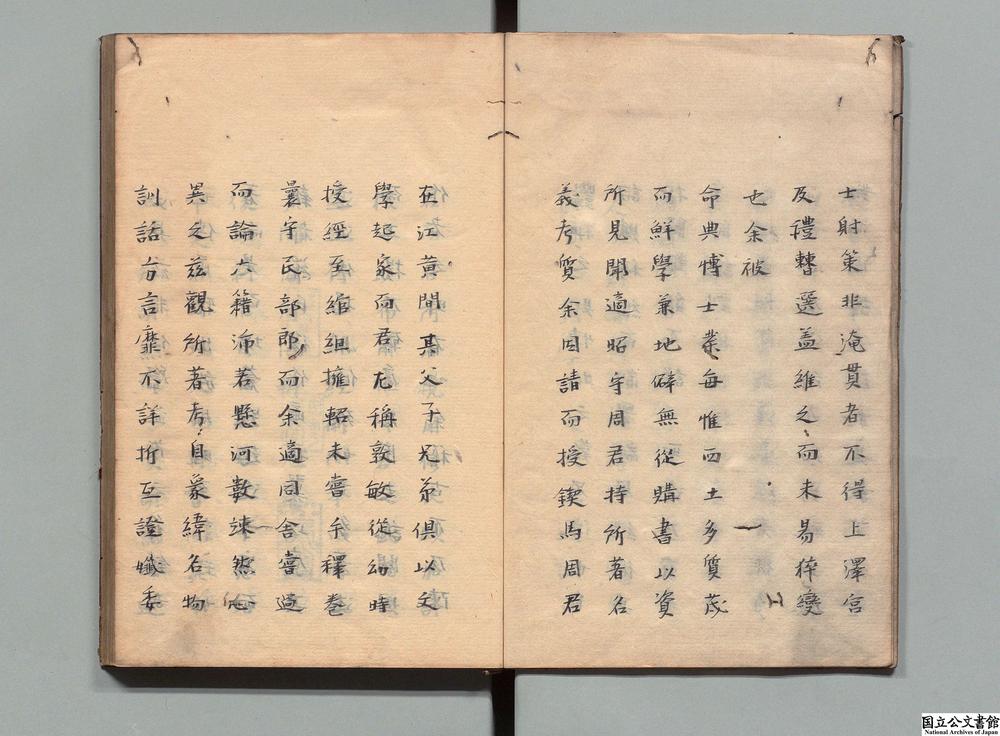 士射策非淹貫者不得上澤宮
及禮轊選盖維之而未易猝變
也余被
命典博士業每惟西土多質茂
而鮮學兼地僻無從購書以資
所見聞適昭守周君持所著名
義考質余因請而授鍥焉周君
在江黄間其父子兄弟俱以文
學起家而君尤稱敦敏從幼時
授經至綰組擁軺未嘗手釋卷
曩守民部郎而余適同舍嘗過
而論六籍沛若懸河數竦然心
異之兹觀所著考自象緯名物
訓詁方言靡不詳折互證孅委
国立公文書館
National Archives of Japan